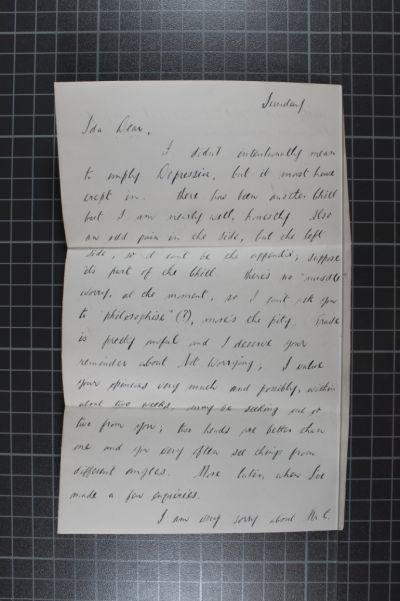 Sunday
Ida Dear,
I didn't intentionally mean
to imply Depression, but it must have
crept in. There has been another Chill
but I am nearly well, honestly. Also
an odd pain in the side, but the left
side, so it can't be the appendix; suppose
its part of the Chill. There's no "
worry, at the moment, so I can't ask you
to "philosophise" (?), more's the pity.
is pretty awful and I deserve your
reminder about Not Worrying; I value
your opinions very much and possibly, within
about two weeks, may be seeking one or
two from you; two heads are better than
one and you very often see things from
different angles. More later, when I've
made a few enquiries.
I am very sorry about Mr C.